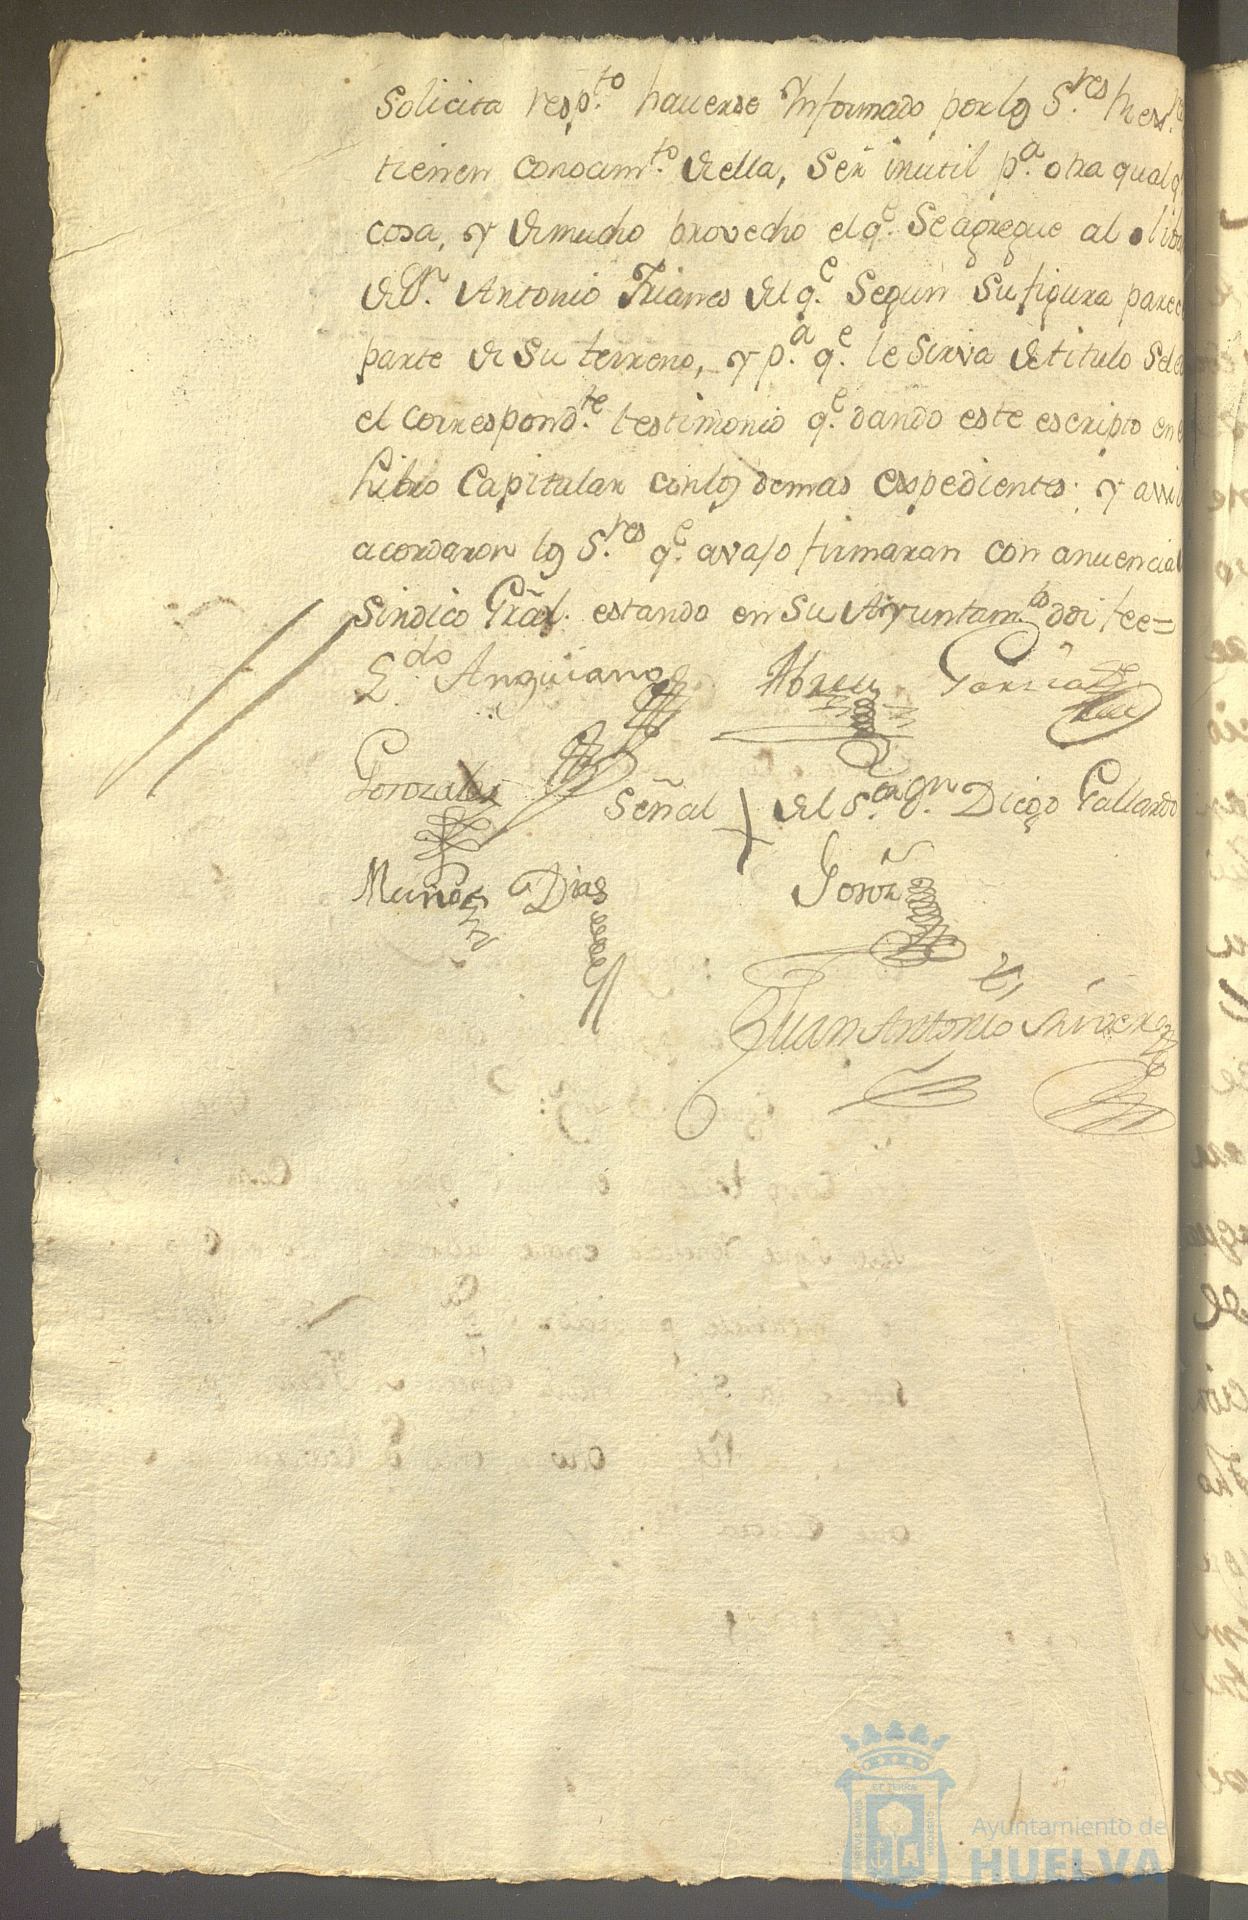 solicita resp.to hauerse Informado por los S.res
tienen conocim.to de ella, ser inutil p.a otra qual q
cosa, y de mucho provecho el q.e se agregue al
de D.n Antonio Trianes del q.e segun su figura parec
parte de su terreno, y p.a q.e le sirva de titulo se le
el correspond.te testimonio q.e dando este escripto en
Libro Capitular con los demas espedientes; y assi
acordaron los S.res q.e avajo firmaran con anuencia
sindico Gral. estando en su Ayuntam.to doi fee=
L.do Anguiano Abreu Garcia
Gonzales Señal del S.or Dn. Diego Gallardo
Muños Dias Gonz
Juan Antonio
ET TERRÆ
PORTUS MARIS
CUSTODIA
Ayuntamiento de
HUELVA